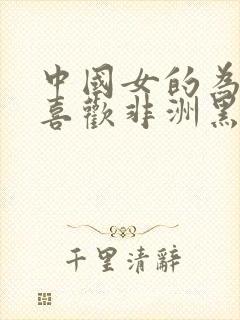 中國女的為
喜歡非洲黑
千里清辭